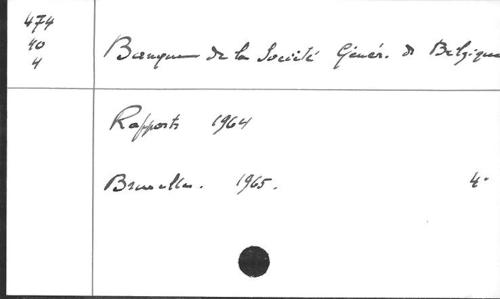 474
40
4
Banque de la Société Génér. de Belgique
Rapports 1964
Bruxelles. 1965. 4°